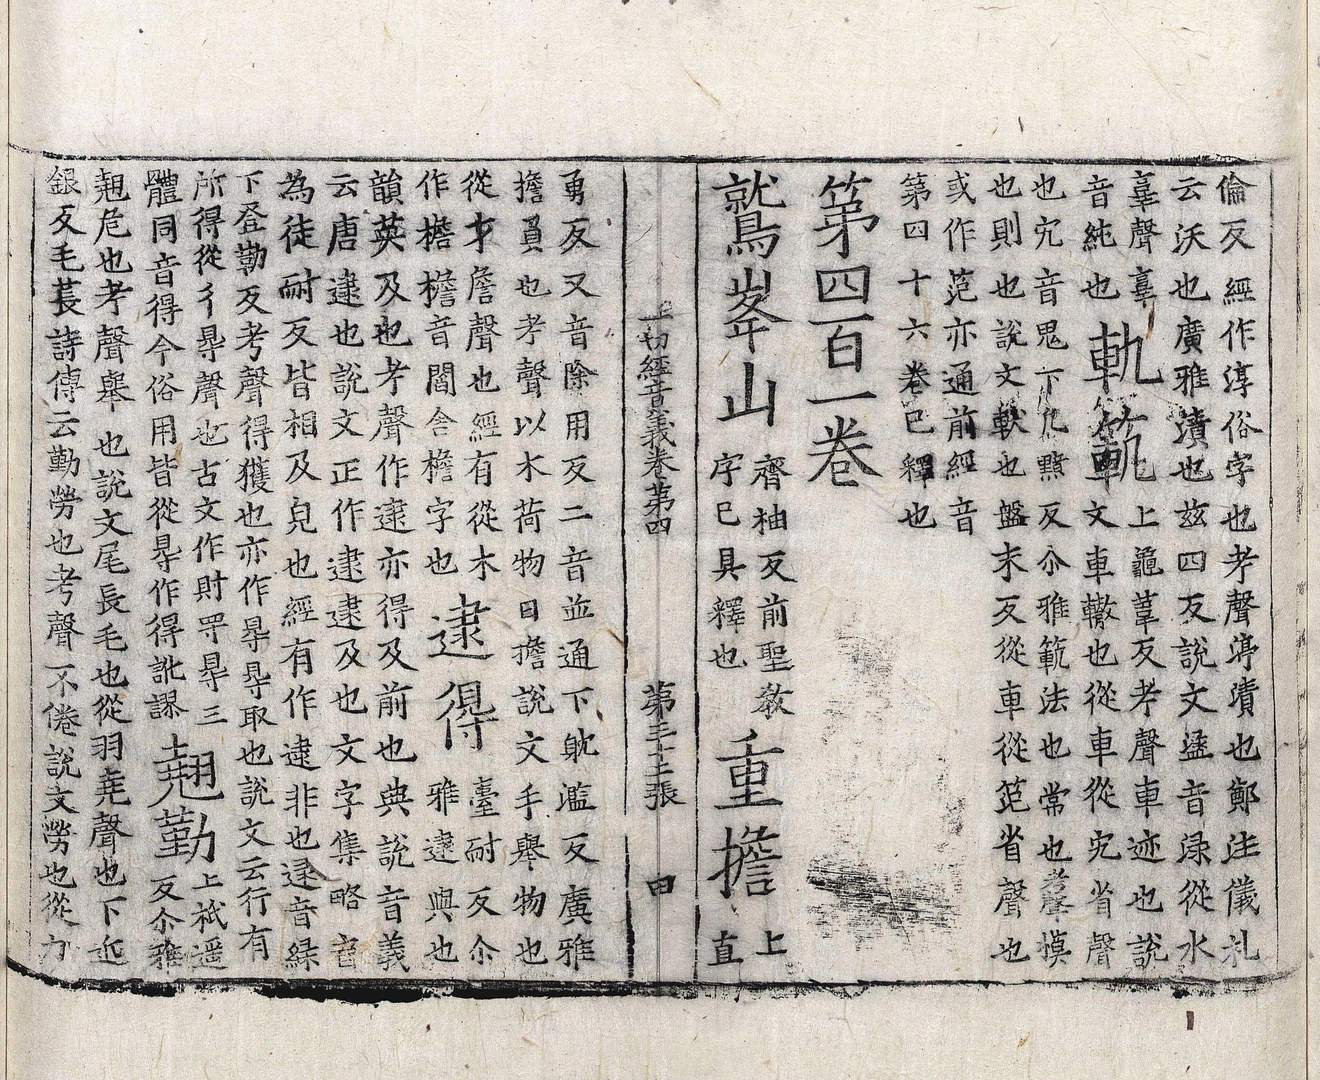 倫反經作淳俗字也考聲渟漬也鄭注儀礼
云沃也廣雅漬也兹四反說文盝音渌從水
𦎫聲𦎫軌範上龜葦反考聲車迹也說
音純也文車轍也從車從宄省聲
也宄音鬼下凡黯反尒雅範法也常也考聲模
也則也說文軷也盤末反從車從笵省聲也
或作笵亦通前經音
第四十六卷已釋也
第四百一卷
鷲峯山齊柚反前聖教字已具釋也重擔上直
一切經音義卷第四 第三十七張 田
勇反又音除用反二音並通下躭濫反廣雅
擔負也考聲以木荷物曰擔說文手舉物也
從才詹聲也經有從木逮得臺耐反尒
作檐檐音閻舍檐字也雅逮與也
韻英及也考聲作逮亦得及前也典說音義
云唐逮也說文正作逮逮及也文字集略音
為徒耐反皆相及皃也經有作逮非也逮音緑
下登勒反考聲得獲也亦作㝵㝵取也說文云行有
所得從彳㝵聲也古文作䙷㝵三
體同音得今俗用皆從㝵作得訛謬翹勤上祇遥反尒雅
翹危也考聲舉也說文尾長毛也從羽堯聲也下近
銀反毛萇詩傳云勤勞也考聲不倦說文勞也從力